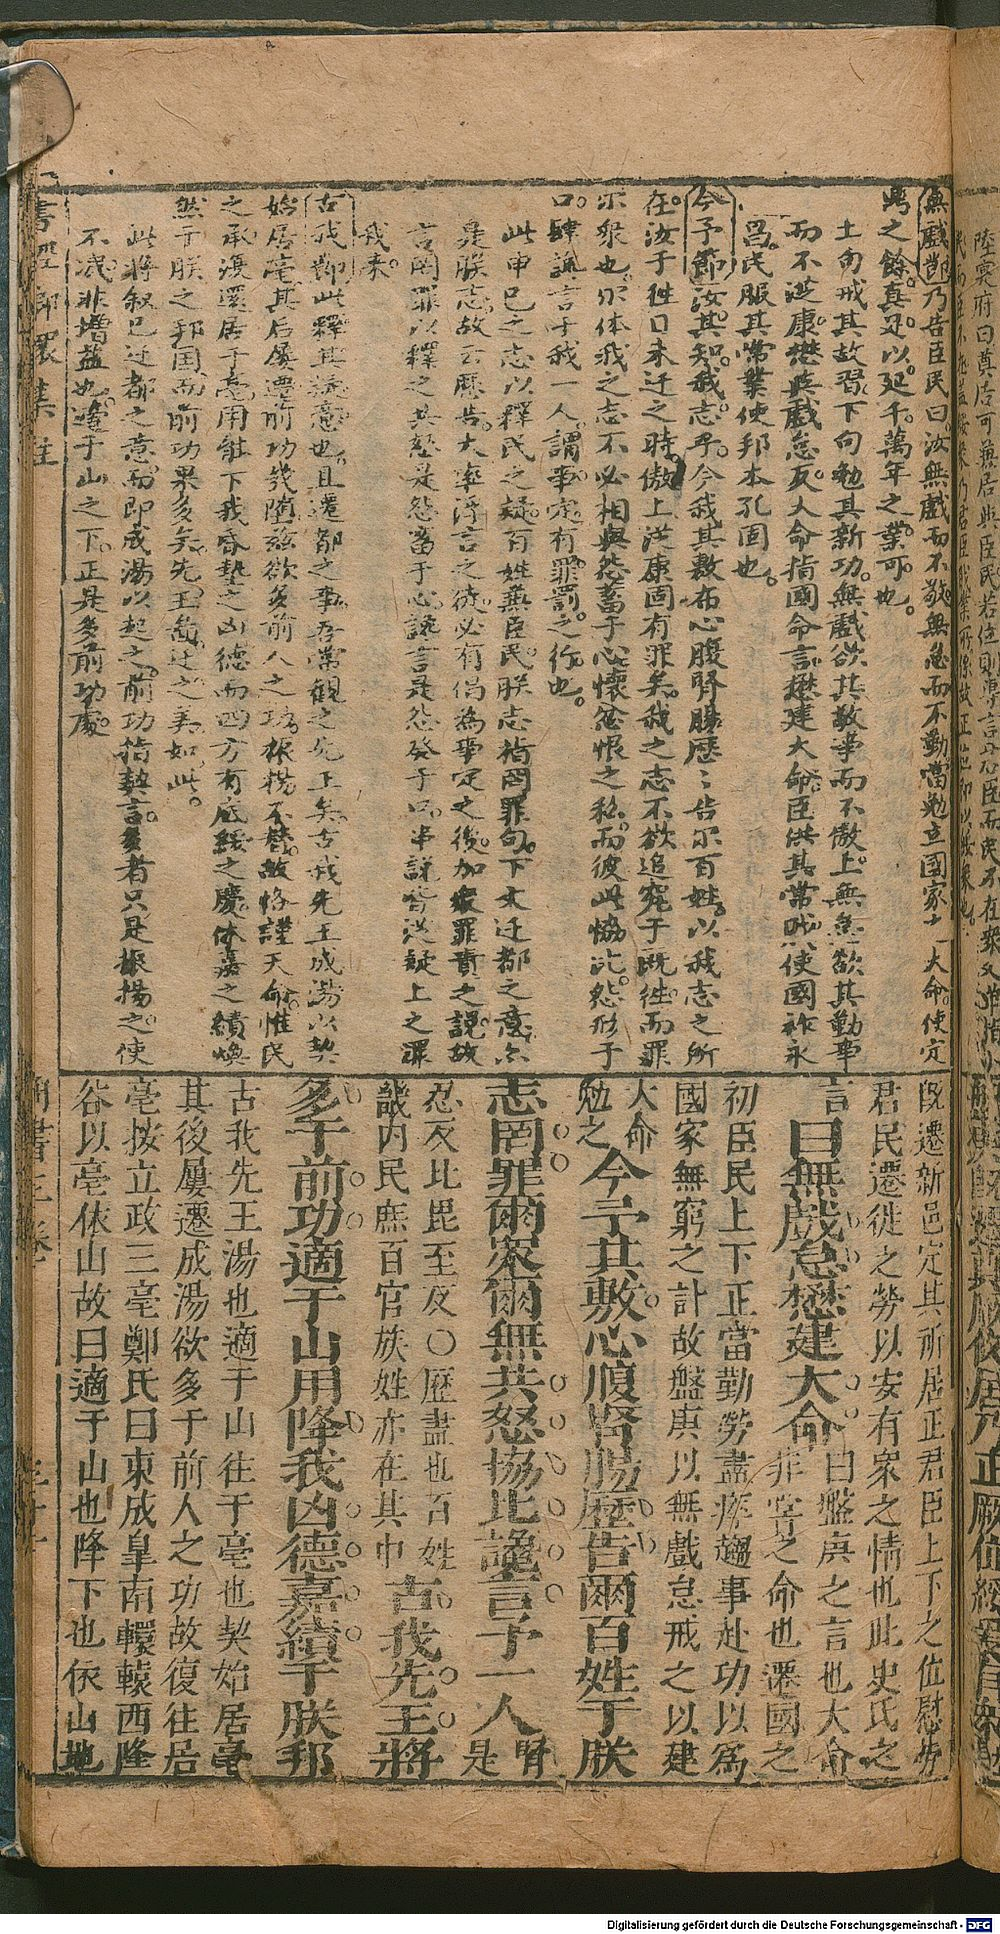 無戲怠乃告臣民曰汝無戲而不敬無怠而不勤當勉立國家大命使定
之餘真足以延千萬年之業可也
上句戒其故習下句勉其新功無戲欲其敬事而不傲上無怠欲其勤事
而不從康懋與戲怠反大命指國命言懋建大命臣供其常職使國祚永
民服其常業使邦本孔固也
今予節汝其知我志乎今我其敷布心腹腎腸歷歷告尔百姓以我志之所
在汝于徃日未迁之時傲上從康固有罪矣我之志不欲追究于既徃而罪
尔衆也尔体我之志不必相與怨蓄于心懷忿恨之私而彼此恊比怨形于
口肆讒言于我一人謂事定有罪罰之行也
此申已之志以釋民之疑百姓兼臣民朕志指罔罪句下文迁都之意亦
是朕志故云歷告大率浮言之徒必有倡為事定之後加衆罪責之說故
言罔罪以釋之共怒是怨蓄于心讒言是怨發于口串說皆從疑上之罪
我来
古我節此釋其疑意也且遷都之事吾嘗觀之先王矣古我先王成湯以契
始居亳其后屢遷前功幾堕兹欲多前人之功
之承復還居于亳用能下我昏墊之凶德而四方有底綏之慶休嘉之績煥
然于朕之邦国而前功果多矣先王啚迁之美如此
此將叙已迁都之意而即成湯以起之前功指契言多者只是振揚之使
不减非增益也適于山之下正是多前功處
既遷新邑定其所居正君臣上下之位慰劳
君民遷徙之勞以安有衆之情也此史氏之
言曰無戲怠懋建大命曰盤庚之言也大命
非常之命也遷國之
初臣民上下正當勤勞盡瘁趨事赴功以為
國家無窮之計故盤庚以無戲怠戒之以建
大命
勉之今予其敷心腹腎腸歷告爾百姓于朕
志罔罪爾眾爾無共怒協比讒言予一人腎
是
忍反比毘至反○歷盡也百姓
畿内民庶百官族姓亦在其中古我先王將
多于前功適于山用降我凶德嘉績于朕邦
古我先王湯也適于山往于亳也契始居亳
其後屢遷成湯欲多于前人之功故復往居
亳按立政三亳鄭氏曰東成皐南轘轅西降
谷以亳依山故曰適于山也降下也依山地
商書三卷
Digitalisierung gefördert durch die Deutsche Forschungsgemeinschaft - DFG